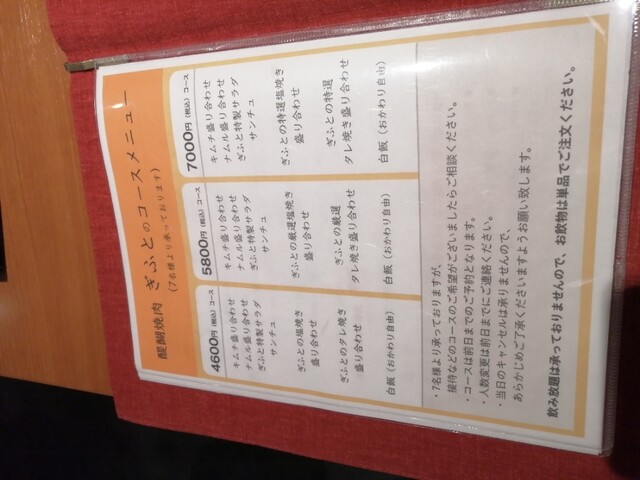 醍醐焼肉 ぎふとのコースメニュー
(7名様より承っております)
4600円(税込)コース
キムチ盛り合わせ
ナムル盛り合わせ
ぎふと特製サラダ
サンチュ
ぎふとの塩焼き
盛り合わせ
ぎふとのタレ焼き
盛り合わせ
白飯(おかわり自由)
5800円(税込)コース
キムチ盛り合わせ
ナムル盛り合わせ
ぎふと特製サラダ
サンチュ
ぎふとの厳選塩焼き
盛り合わせ
ぎふとの厳選
タレ焼き盛り合わせ
白飯(おかわり自由)
7000円(税込)コース
キムチ盛り合わせ
ナムル盛り合わせ
ぎふと特製サラダ
サンチュ
ぎふとの特選塩焼き
盛り合わせ
ぎふとの特選
タレ焼き盛り合わせ
白飯(おかわり自由)
・7名様より承っておりますが、
接待などのコースのご希望がございましたらご相談ください。
・コースは前日までのご予約となります。
・人数変更は前日までにご連絡ください。
・当日のキャンセルは承りませんので、
あらかじめご了承くださいますようお願い致します。
飲み放題は承っておりませんので、お飲物は単品でご注文ください。